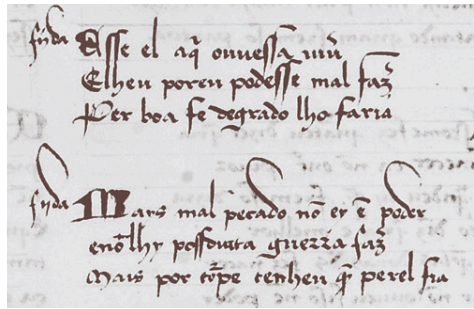 fijda Asse el aq̄ ouuessā uiū
Elheu poren podesse mal faz̄
Per boa fe degrado lho faria
fijda Mays mal pecado nō er ē poder
enō lhy possoutra guerra faz̄
Mais por tōpe tenheu q̄ perel